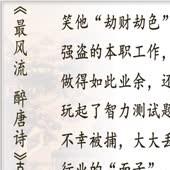 《最风流 醉唐诗》
笑他“劫财劫色”
强盗的本职工作，
做得如此业余，还
玩起了智力测试题
不幸被捕，大大丢
行业的“面子”